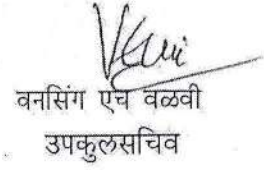 वनसिंग एच वळवी
उपकुलसचिव